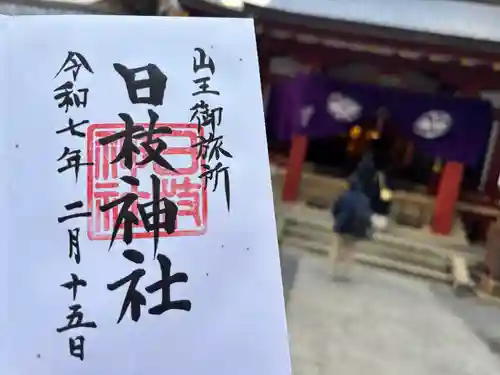 山王御旅所
日枝神社
日枝神社
令和七年二月十五日